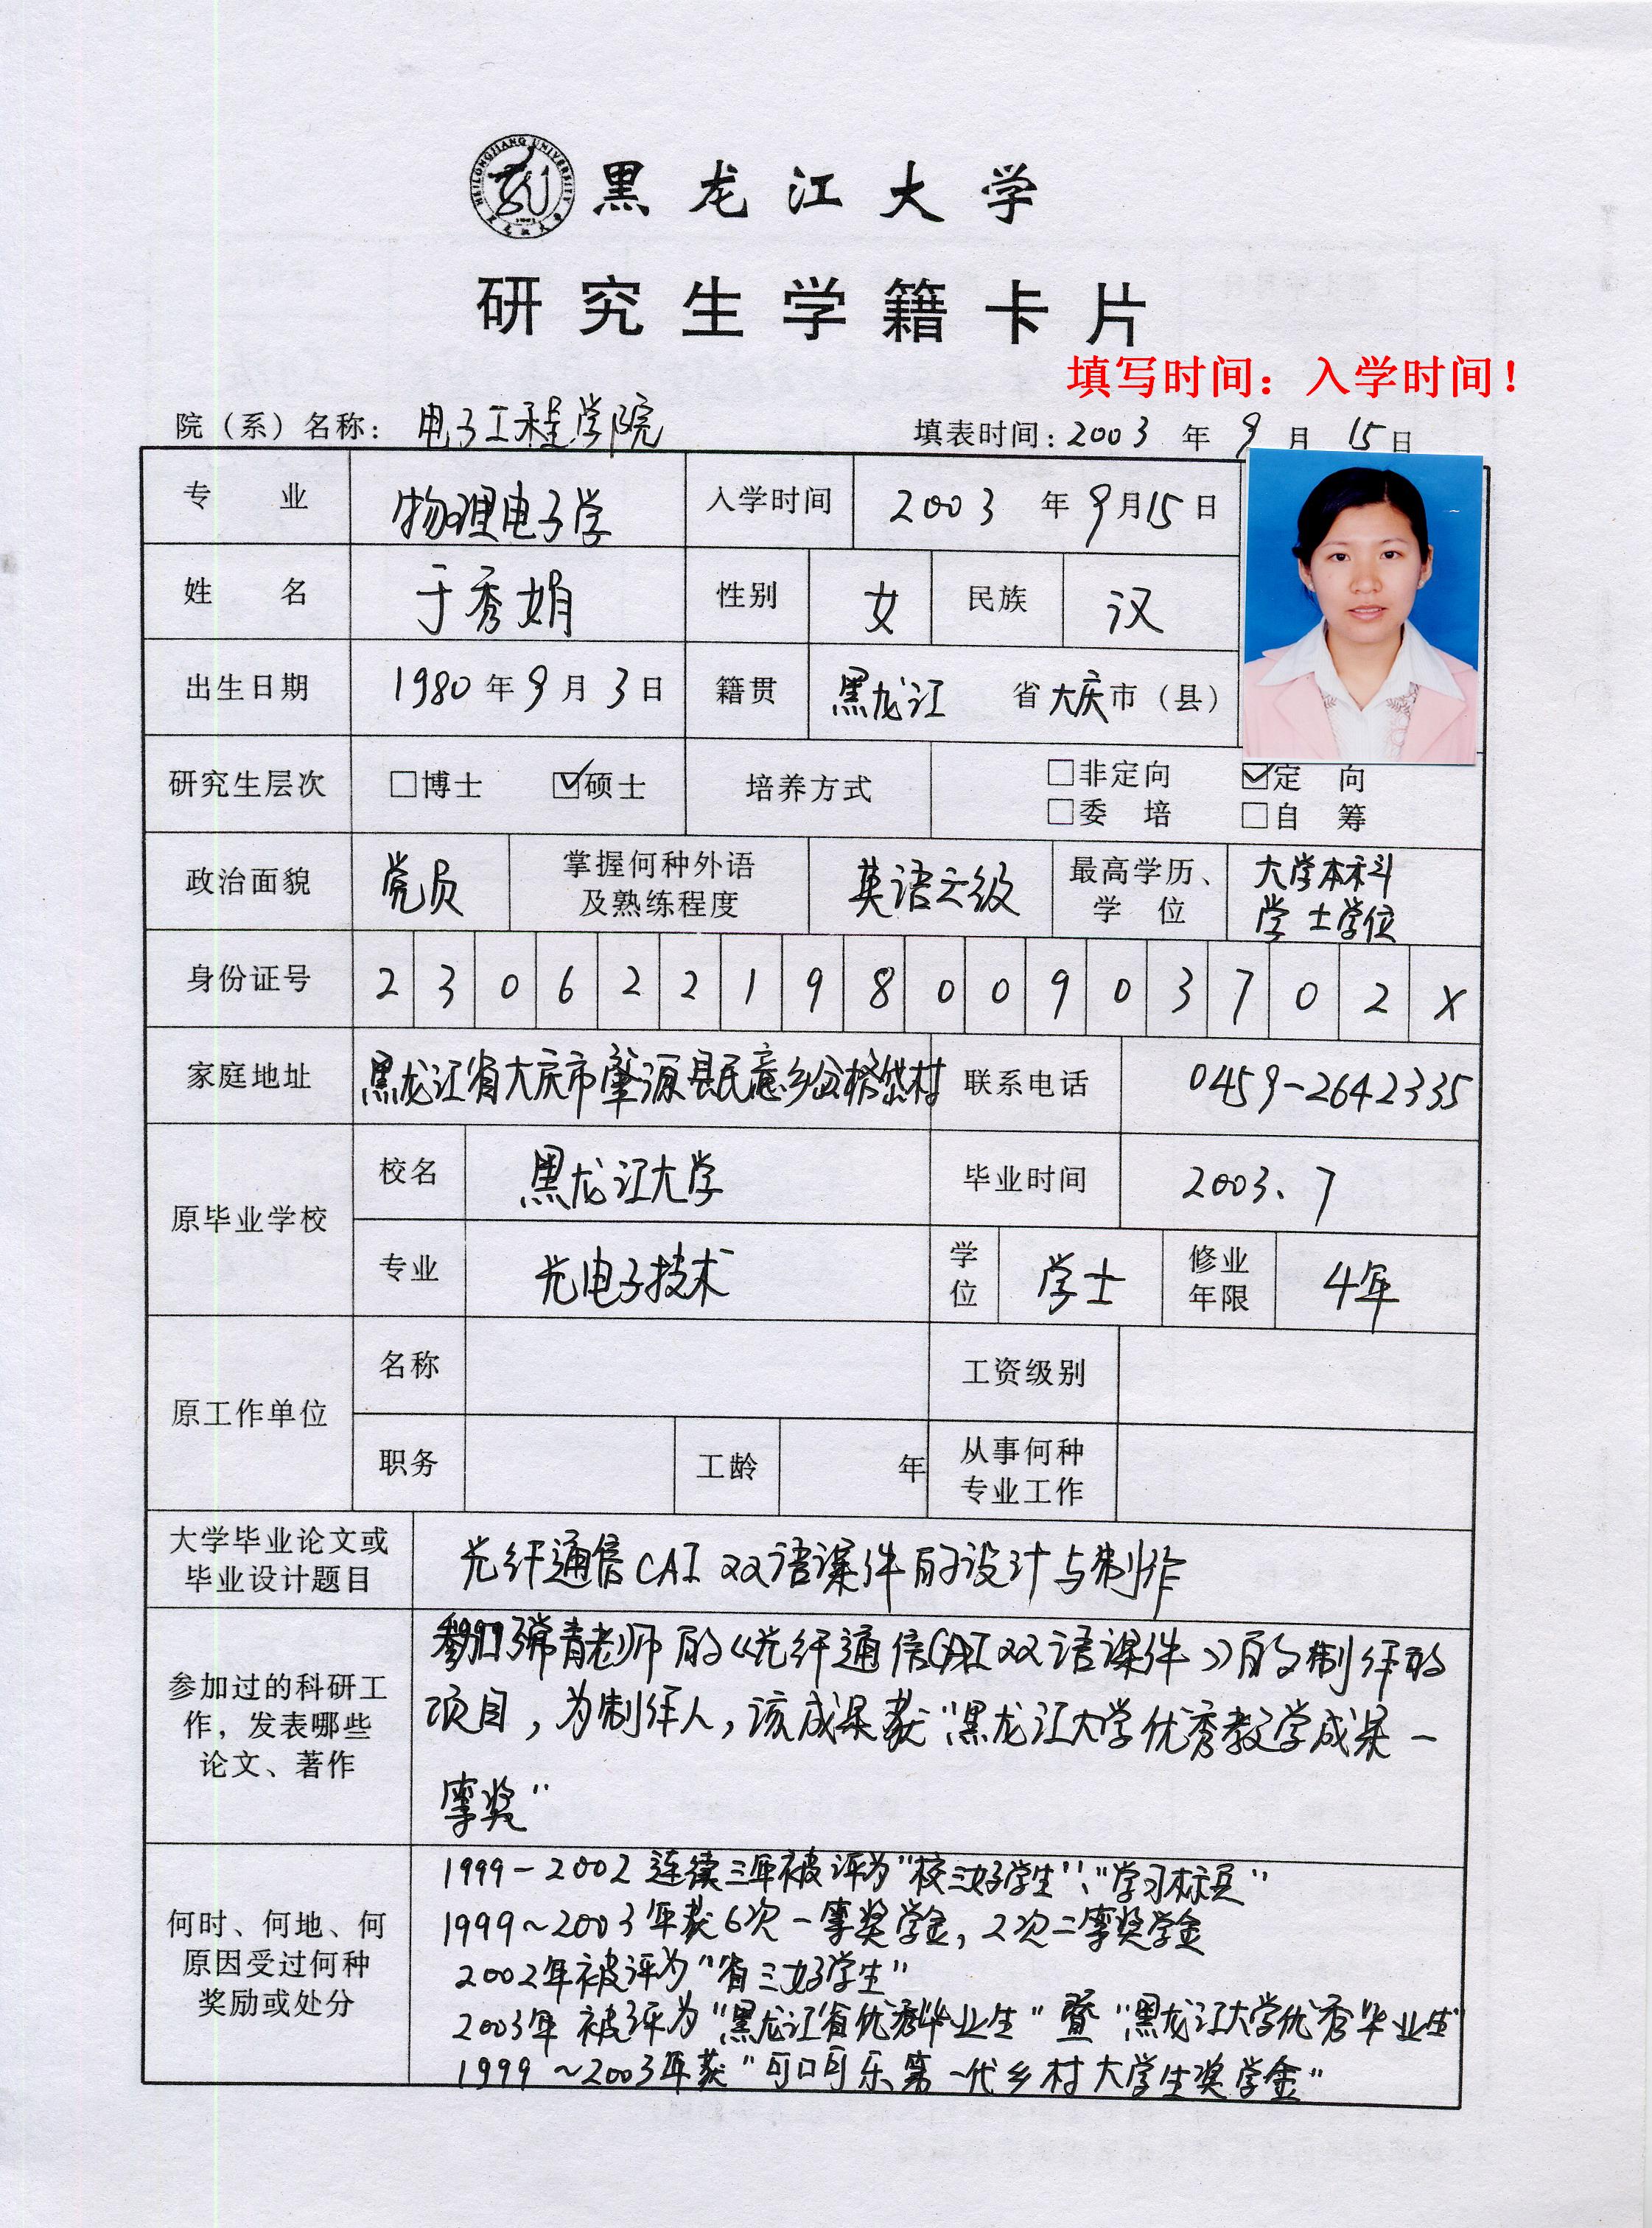 HEILONGJIANG UNIVERSITY
黑龙江大学
研究生学籍卡片
填写时间：入学时间！
院（系）名称： 电子工程学院 填表时间：2003 年 9 月 15日
专 业 物理电子学 入学时间 2003 年 9月15日
姓 名 于秀娟 性别 女 民族 汉
出生日期 1980 年 9 月 3 日 籍贯 黑龙江 省 大庆 市（县）
研究生层次 □博士 ☑硕士 培养方式 □非定向 ☑定 向
□委 培 □自 筹
政治面貌 党员 掌握何种外语及熟练程度 英语六级 最高学历、学 位 大学本科
学士学位
身份证号 2 3 0 6 2 2 1 9 8 0 0 9 0 3 7 0 2 X
家庭地址 黑龙江省大庆市肇源县民意乡 村 联系电话 0459-2642335
原毕业学校 校名 黑龙江大学 毕业时间 2003、7
专业 光电子技术 学位 学士 修业年限 4年
原工作单位 名称 工资级别
职务 工龄 年 从事何种专业工作
大学毕业论文或
毕业设计题目 光纤通信CAI双语课件的设计与制作
参加过的科研工
作，发表哪些
论文、著作
参加 常青老师的《光纤通信CAI双语课件》的制作的
项目，为制作人，该成果获“黑龙江大学优秀教学成果一
等奖”
何时、何地、何
原因受过何种
奖励或处分
1999-2002 连续三年被评为“校三好学生”、“学习标兵”
1999~2003年获6次一等奖学金，2次二等奖学金
2002年被评为“省三好学生”
2003年 被评为“黑龙江省优秀毕业生” 暨 “黑龙江大学优秀毕业生”
1999~2003年获“可口可乐第一代乡村大学生奖学金”